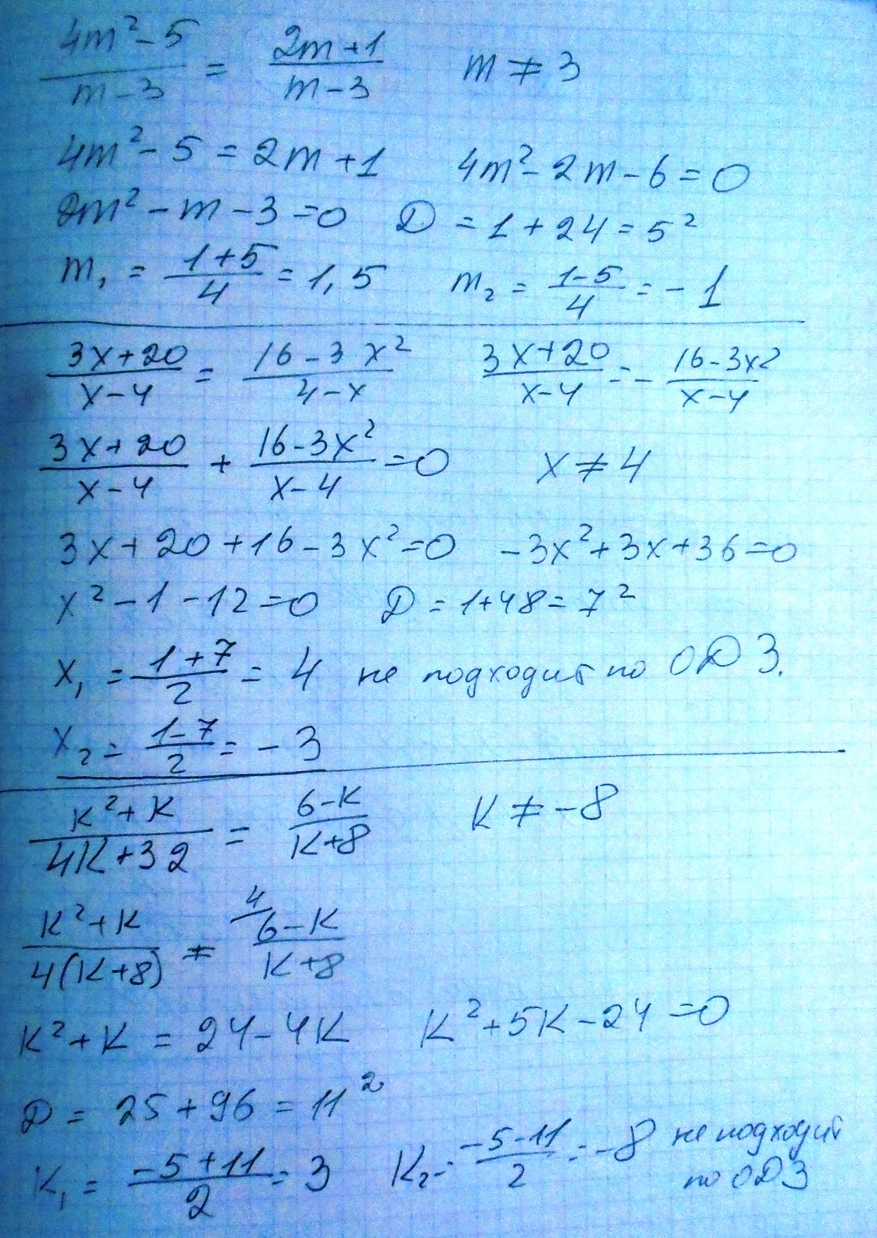 (4m² - 5)/(m - 3) = (2m + 1)/(m - 3)    m ≠ 3
4m² - 5 = 2m + 1    4m² - 2m - 6 = 0
2m² - m - 3 = 0    D = 1 + 24 = 5²
m₁ = (1 + 5)/4 = 1,5    m₂ = (1 - 5)/4 = -1
(3x + 20)/(x - 4) = (16 - 3x²)/(4 - x)    (3x + 20)/(x - 4) = - (16 - 3x²)/(x - 4)
(3x + 20)/(x - 4) + (16 - 3x²)/(x - 4) = 0    x ≠ 4
3x + 20 + 16 - 3x² = 0    -3x² + 3x + 36 = 0
x² - 1 - 12 = 0    D = 1 + 48 = 7²
x₁ = (1 + 7)/2 = 4 не подходит по ОДЗ.
x₂ = (1 - 7)/2 = -3
(k² + k)/(4k + 32) = (6 - k)/(k + 8)    k ≠ -8
(k² + k)/(4(k + 8)) = ⁴⁄(6 - k)/(k + 8)
k² + k = 24 - 4k    k² + 5k - 24 = 0
D = 25 + 96 = 11²
k₁ = (-5 + 11)/2 = 3    k₂ = (-5 - 11)/2 = -8 не подходит
по ОДЗ